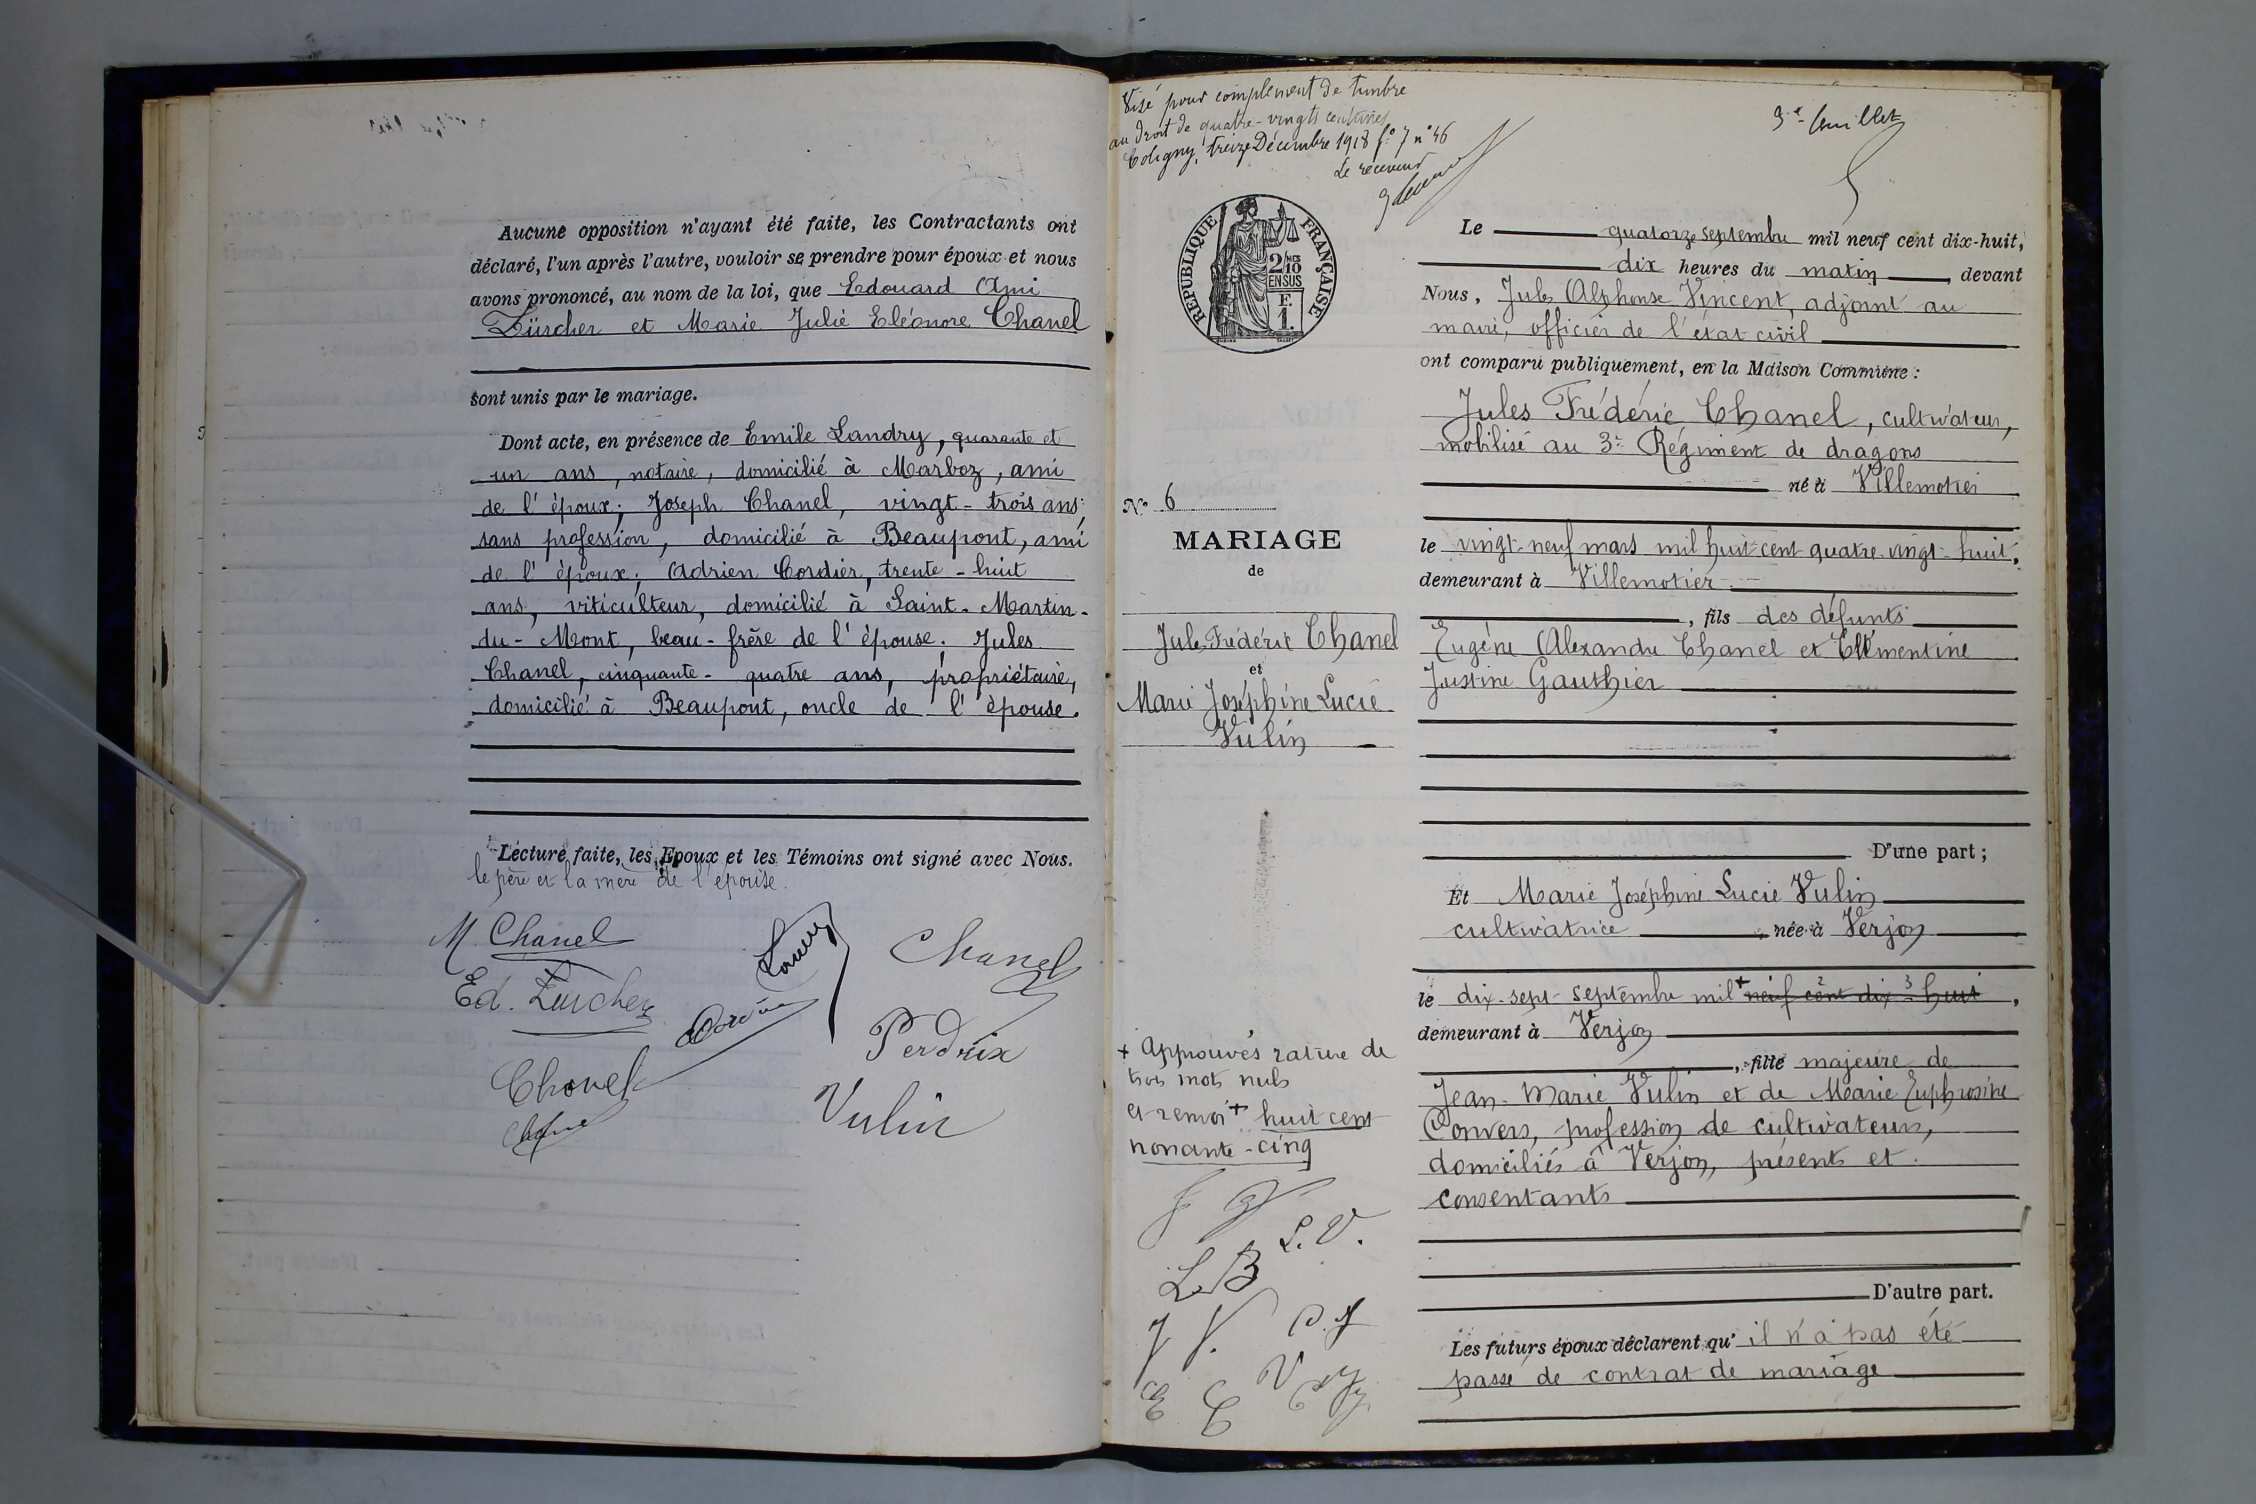 Aucune opposition n'ayant été faite, les Contractants ont
déclaré, l'un après l'autre, vouloir se prendre pour époux et nous
avons prononcé, au nom de la loi, que Edouard Ami
Zürcher et Marie Julie Eléonore Chanel
sont unis par le mariage.
Dont acte, en présence de Emile Landry, quarante et
un ans, notaire, domicilié à Marboz, ami
de l'époux; Joseph Chanel, vingt-trois ans,
sans profession, domicilié à Beaupont, ami
de l'époux; Adrien Cordier, trente-huit
ans, viticulteur, domicilié à Saint-Martin-
du-Mont, beau-frère de l'épouse; Jules
Chanel, cinquante-quatre ans, propriétaire,
domicilié à Beaupont, oncle de l'épouse.
Lecture faite, les Epoux et les Témoins ont signé avec Nous.
le père et la mère de l'épouse.
M. Chanel
Landry
Chanel
Ed. Zurcher
Perdrix
Chanel
Vulin
Visé pour complément de timbre
au droit de quatre-vingts centimes
Coligny, treize Décembre 1918 f° 7 n° 46
Le receveur
3e feuillet
REPUBLIQUE FRANÇAISE
2/10 EN SUS
F. 1.
N° 6
MARIAGE
de
Jules Frédéric Chanel
et
Marie Joséphine Lucie
Vulin
+ Approuvés rature de
trois mots nuls
et renvoi + huit cent
nonante-cinq
L.V.
L.B
J V.
Le quatorze septembre mil neuf cent dix-huit,
dix heures du matin, devant
Nous, Jules Alphonse Vincent, adjoint au
maire, officier de l'état civil
ont comparu publiquement, en la Maison Commune :
Jules Frédéric Chanel, cultivateur,
mobilisé au 3e Régiment de dragons
né à Villemotier
le vingt-neuf mars mil huit cent quatre-vingt-huit,
demeurant à Villemotier
, fils des défunts
Eugène Alexandre Chanel et Clémentine
Justine Gauthier
D'une part ;
Et Marie Joséphine Lucie Vulin
cultivatrice née à Verjon
le dix-sept septembre mil + neuf cent dix-huit,
demeurant à Verjon
, fille majeure de
Jean-Marie Vulin et de Marie Euphrosine
Convers, profession de cultivateurs,
domiciliés à Verjon, présents et
consentants
D'autre part.
Les futurs époux déclarent qu'il n'a pas été
passé de contrat de mariage